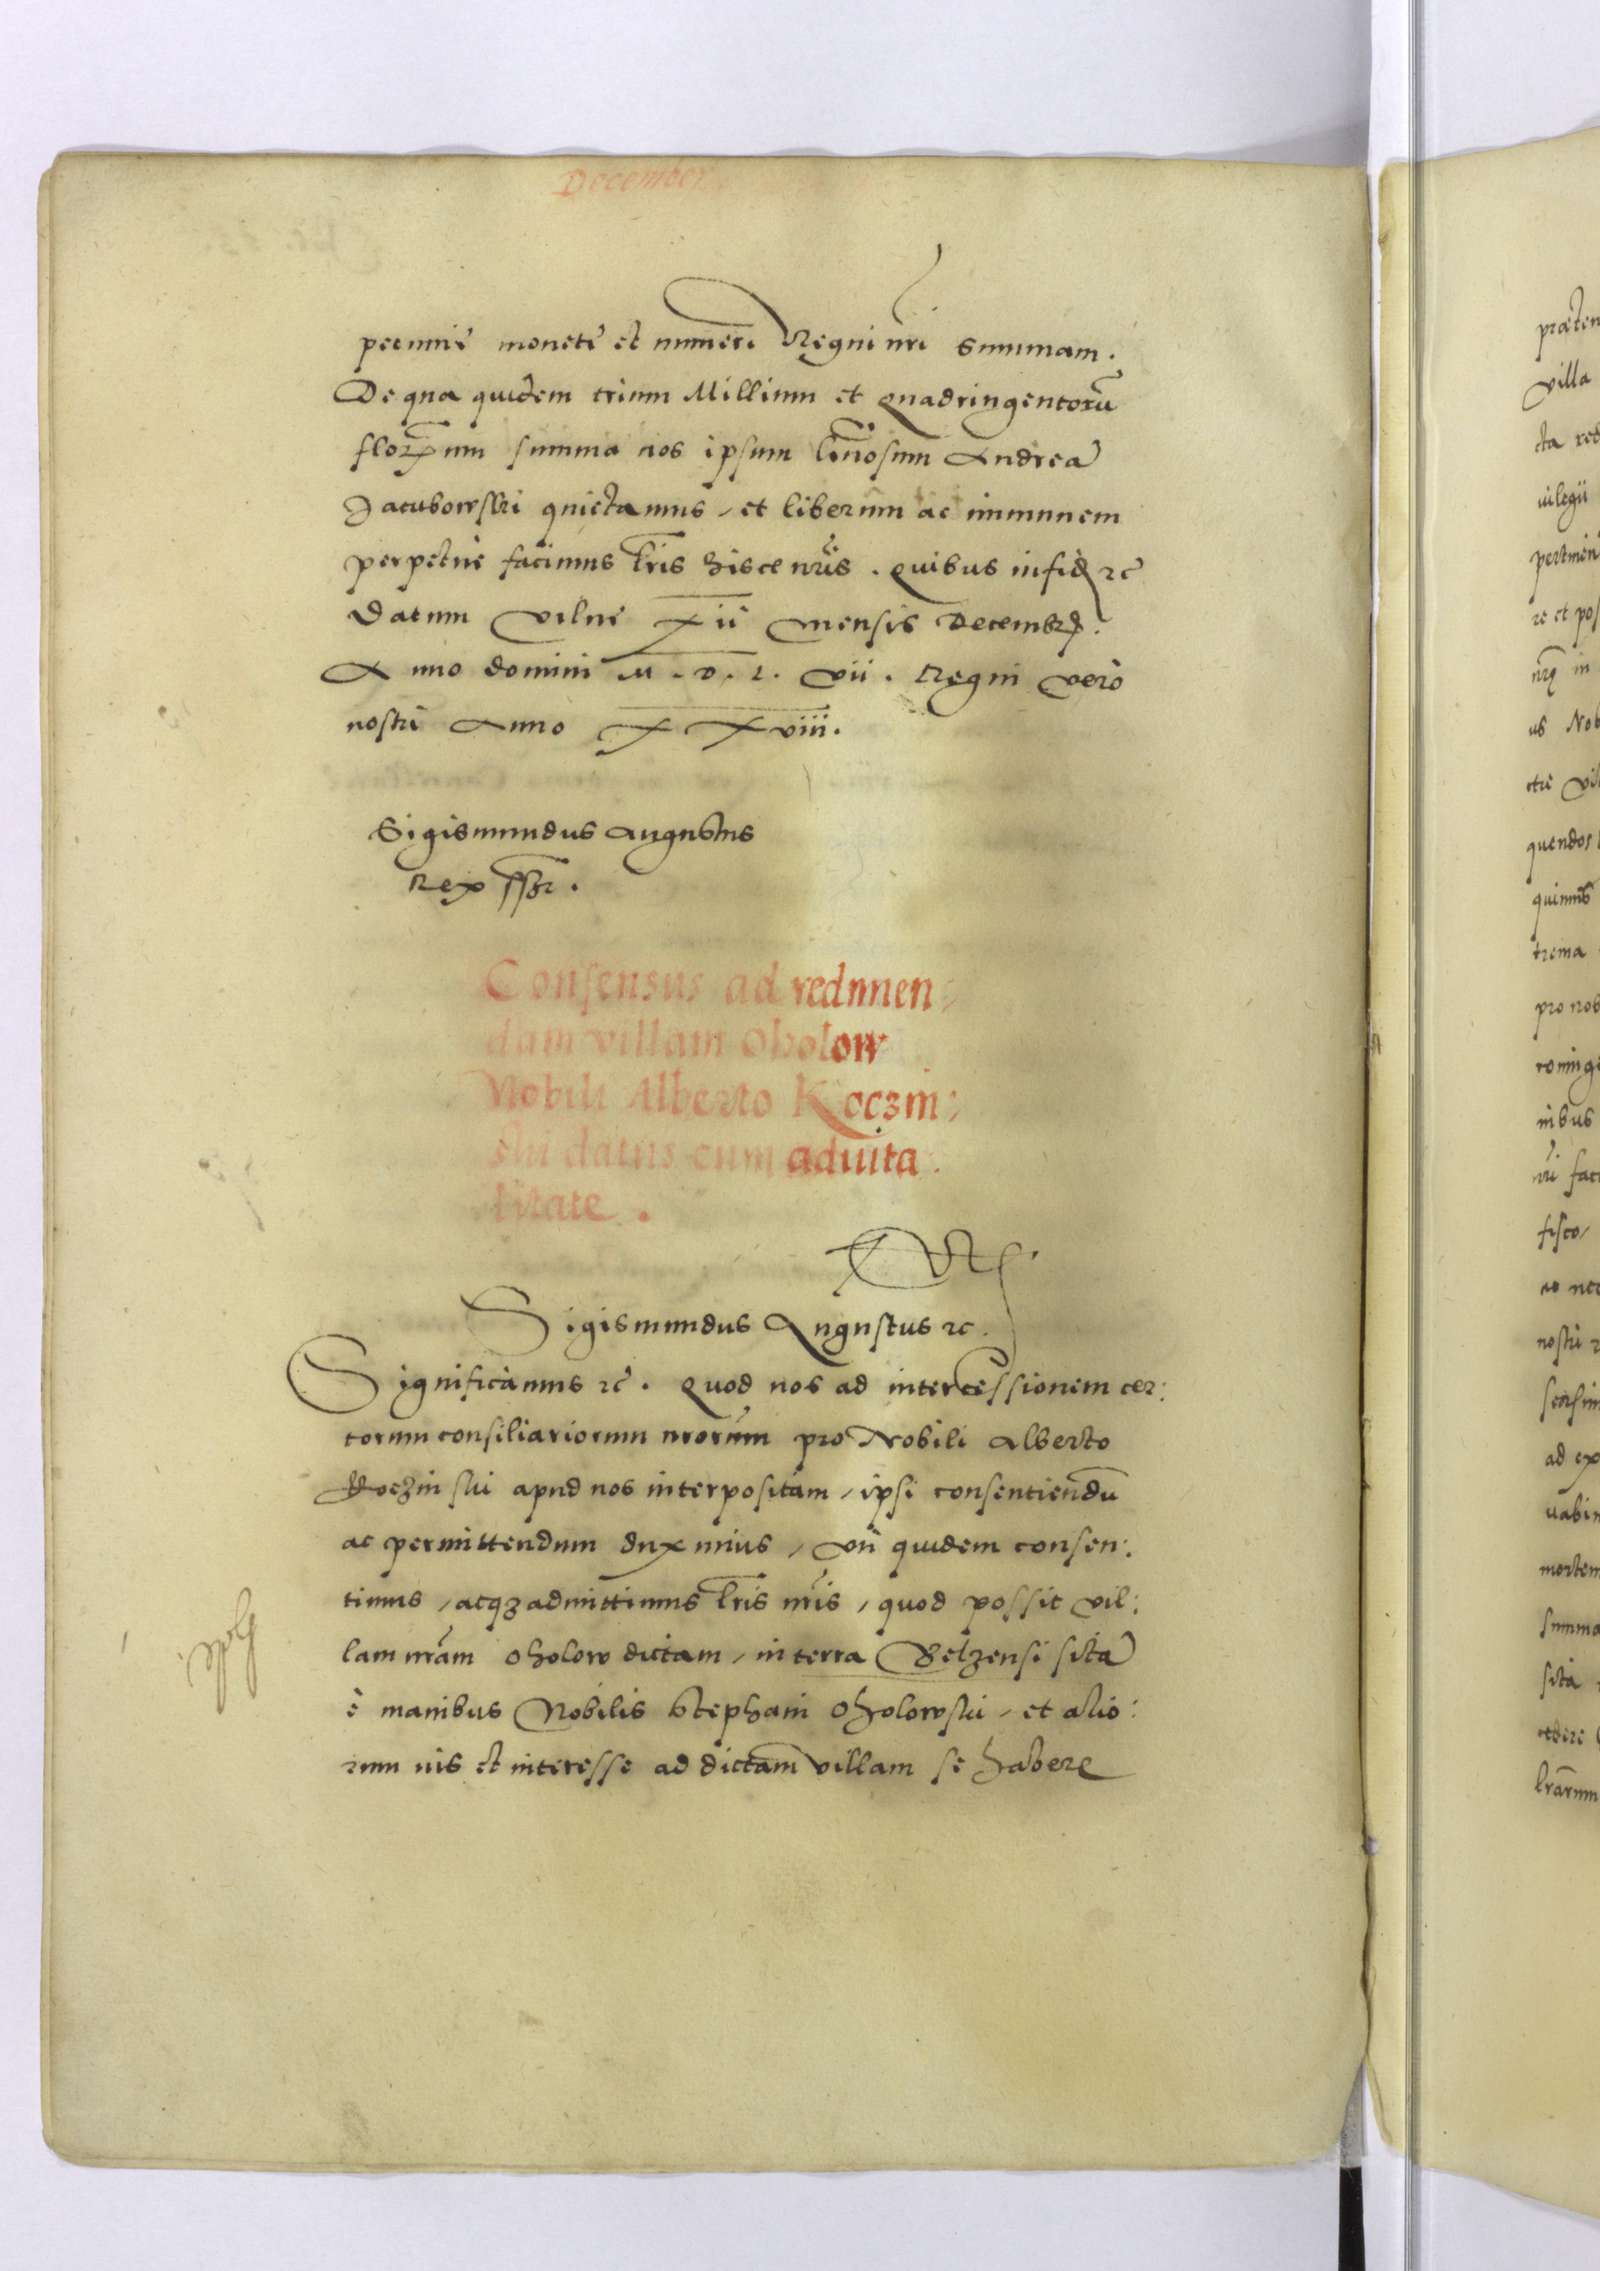 December
pecunie monete et numeri Regni nri summam.
De qua quidem trium Millium et quadringentorū
florenum summa nos ipsum Gnosum Andreā
Jacubowski quietamus, et liberum ac immunem
perpetue facimus lris hisce nris. Quibus in fid rc
Datum Vilne xii mensis Decembr.
Anno domini M.D.L.vii. Regni vero
nostri Anno XXviii.
Sigismundus Augustus
Rex sszt.
Consensus ad redimen:
dam villam Oholow
Nobili Alberto Koczin:
ski datus cum aduita
litate.
Sigismundus Augustus rc.
Significamus rc. Quod nos ad intercessionem cer:
torum consiliariorum nrorum pro Nobili Alberto
Koczinski apud nos interpositam, ipsi consentiendū
ac permittendum duximus, vti quidem consen:
timus, atqz admittimus lris nris, quod possit vil:
lam nram Oholow dictam, in terra Belzensi sitā
è manibus Nobilis Stephani Oholowski, et alio:
rum ius et interesse ad dictam villam se habere
præten
villa
cta red
uilegii
pertinen
re et pos
in
us Nob
quendos
quimus
trema
pro nob
nibus
nri faci
fisco,
ac nec
nostri
ad ex
mortem
summa
sita
lrarum